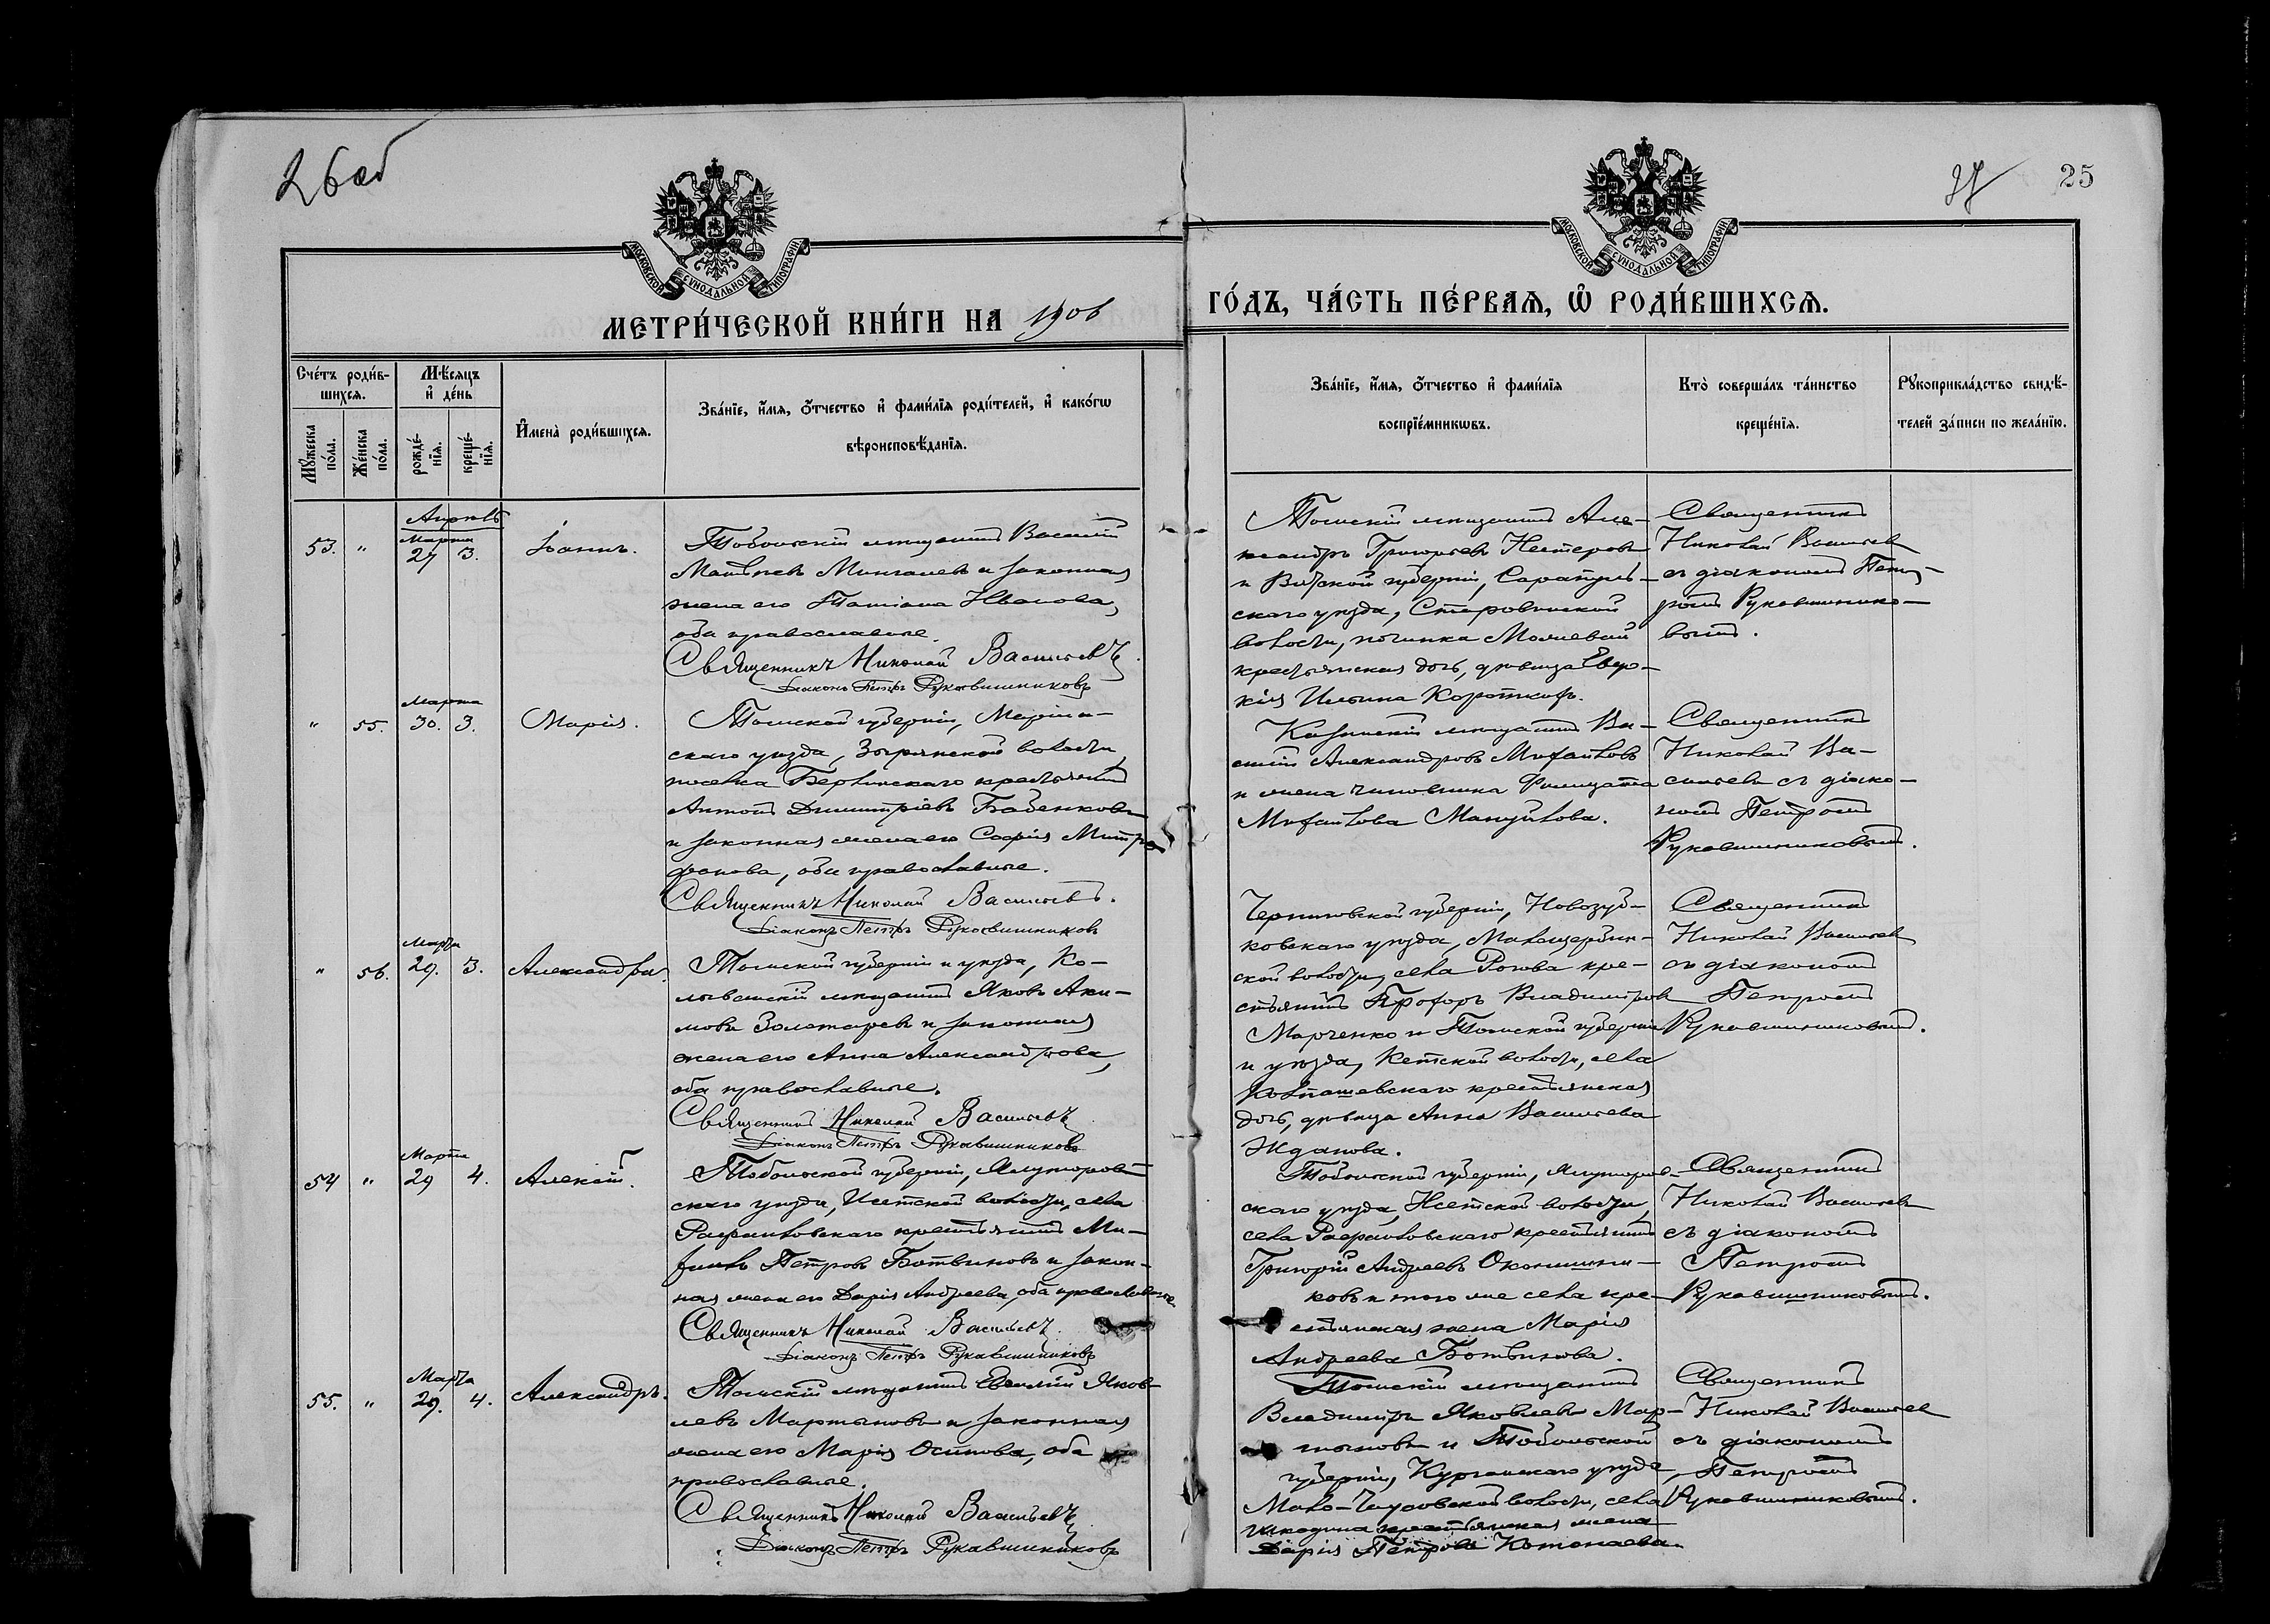 26 об
25
МОСКОВСКОЙ СѴНОДАЛЬНОЙ ТИПОГРАФІИ
МОСКОВСКОЙ СѴНОДАЛЬНОЙ ТИПОГРАФІИ
МЕТРИ́ЧЕСКОЙ КНИ́ГИ НА 1906
ГО́ДЪ, ЧА́СТЬ ПЕ́РВАѦ, Ѽ РОДИ́ВШИХСѦ.
Сче́тъ роди́в-
шихсѧ.
Мꙋ́жеска по́ла.
Же́нска по́ла.
Мѣ́сѧцъ и҆ де́нь
рожде́-
нїѧ.
креще́-
нїѧ.
И҆мена̀ роди́вшихсѧ.
Зва́нїе, и҆́мѧ, ѻ҆́тчество и҆ фами́лїѧ роди́телей, и҆ како́гѡ
вѣроисповѣ́данїѧ.
Зва́нїе, и҆́мѧ, ѻ҆́тчество и҆ фами́лїѧ
воспрїе́мникѡвъ.
Кто̀ соверша́лъ та́инство
креще́нїѧ.
Рꙋкоприкла́дство свидѣ́-
телей за́писи по жела́нїю.
Апрель
53. " Марта 27 3. Іоаннъ.
Тобольскій мѣщанинъ Василій
Матвѣевъ и законная
жена его Татіана Иванова,
оба православные.
Священникъ Николай Васильевъ
Діаконъ Петръ Рукавишниковъ
Томскій мѣщанинъ Але-
ксандръ Григорьевъ Нестеровъ
и Вятской губерніи, Сарапуль-
скаго уѣзда,
волости, починка
крестьянская дочь, дѣвица Евро-
кія Ильина Короткихъ.
Священникъ
Николай Васильев
съ діакономъ Пет-
ромъ Рукавишнико-
вымъ.
" 55. Марта 30. 3. Марія.
Томской губерніи, Маріин-
скаго уѣзда, Зырянской волости,
поселка крестьянинъ
Антонъ Димитріевъ Бабенковъ
и законная жена его Софія Митро-
фанова, оба православные.
Священникъ Николай Васильевъ.
Діаконъ Петръ Рукавишниковъ
мѣщанинъ Ва-
силій Александровъ Михайловъ
и жена чиновника
Михайлова
Священникъ
Николай Ва-
сильевъ съ діако-
номъ Петромъ
Рукавишниковымъ.
" 56. Марта 29. 3. Александра.
Томской губерніи и уѣзда, Ко-
лыванскій мѣщанинъ Яковъ Аки-
мовъ Золотаревъ и законная
жена его Анна Александрова,
оба православные.
Священникъ Николай Васильевъ
Діаконъ Петръ Рукавишниковъ
Черниговской губерніи, Новозуб-
ковскаго уѣзда, Малощербин-
ской волости, села Рогова кре-
стьянинъ Прохоръ Владиміровъ
Марченко и Томской губерніи
и уѣзда, Кетской волости, села
Колпашевскаго крестьянская
дочь, дѣвица Анна Васильева
Жданова.
Священникъ
Николай Васильев
съ діакономъ
Петромъ
Рукавишниковымъ.
54 " Марта 29 4. Алексій.
Тобольской губерніи, Ялуторов-
скаго уѣзда, Исетской волости, села
Рафаиловскаго крестьянинъ Ми-
хаилъ Петровъ Ботвиновъ и закон-
ная жена его Дарія Андреева, оба православные.
Священникъ Николай Васильевъ.
Діаконъ Петръ Рукавишниковъ
Тобольской губерніи, Ялуторов-
скаго уѣзда, Исетской волости,
села Рафаиловскаго крестьянинъ
Григорій Андреевъ Околишни-
ковъ и того же села кре-
стьянская жена Марія
Андреева Ботвинова.
Священникъ
Николай Васильевъ
съ діакономъ
Петромъ
Рукавишниковымъ.
55. " Марта 29. 4. Александръ.
Томскій мѣщанинъ Евгеній Яков-
левъ Мартыновъ и законная
жена его Марія Осипова, оба
православные.
Священникъ Николай Васильевъ
Діаконъ Петръ Рукавишниковъ
Томскій мѣщанинъ
Владиміръ Яковлевъ Мар-
тыновъ и Тобольской
губерніи, Курганскаго уѣзда
Мало-Чаусовской волости, села
крестьянская жена
Дарія Петрова
Священникъ
Николай Васильев
съ діакономъ
Петромъ
Рукавишниковымъ.